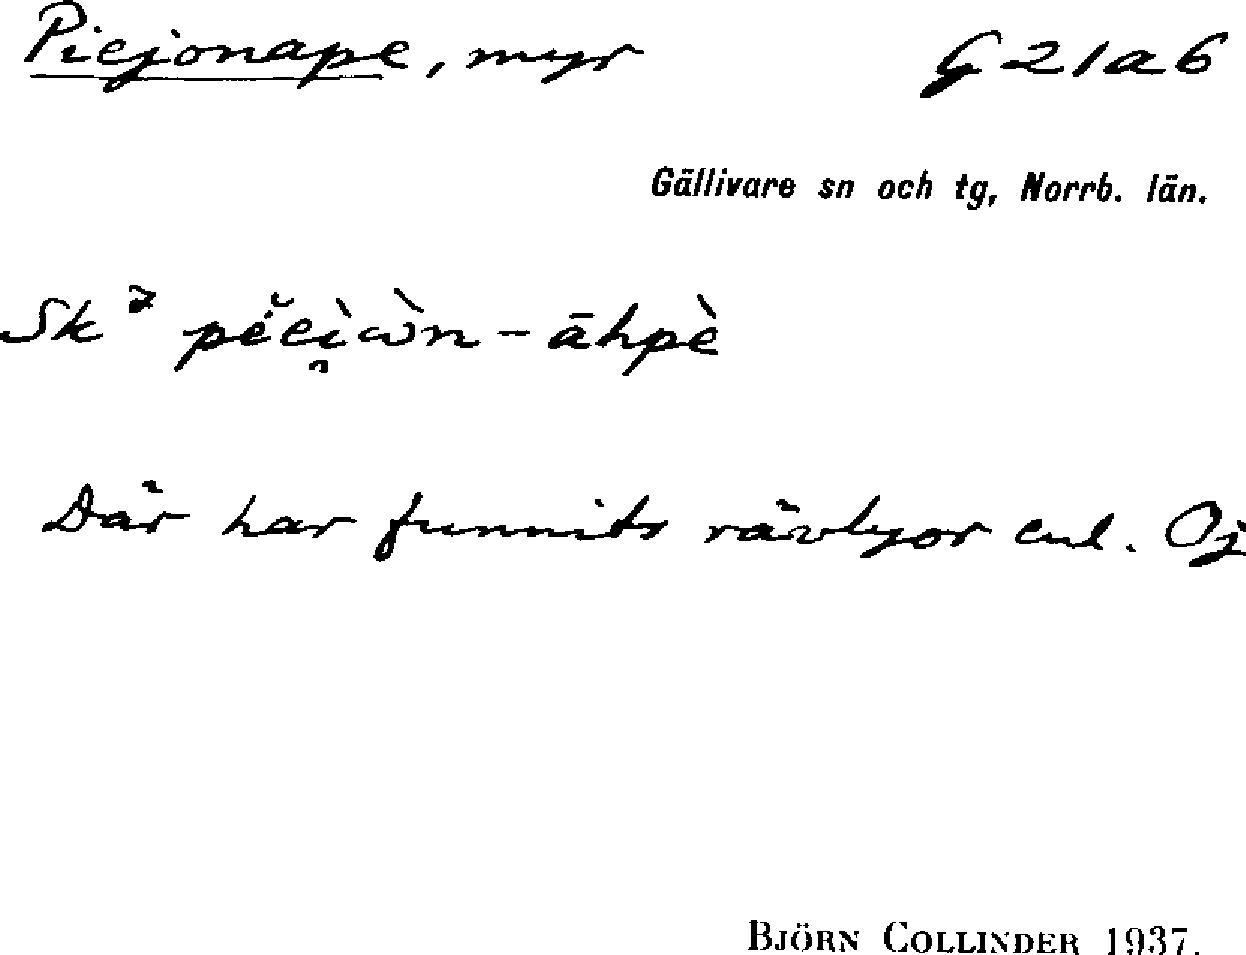 Piejonape, myr G 21a6
Gällivare sn och tg, Norrb. län.
Sk pĕei̯ὼn-āhpè
Där har funnits rävlyor enl. Oj
BJÖRN COLLINDER 1937.